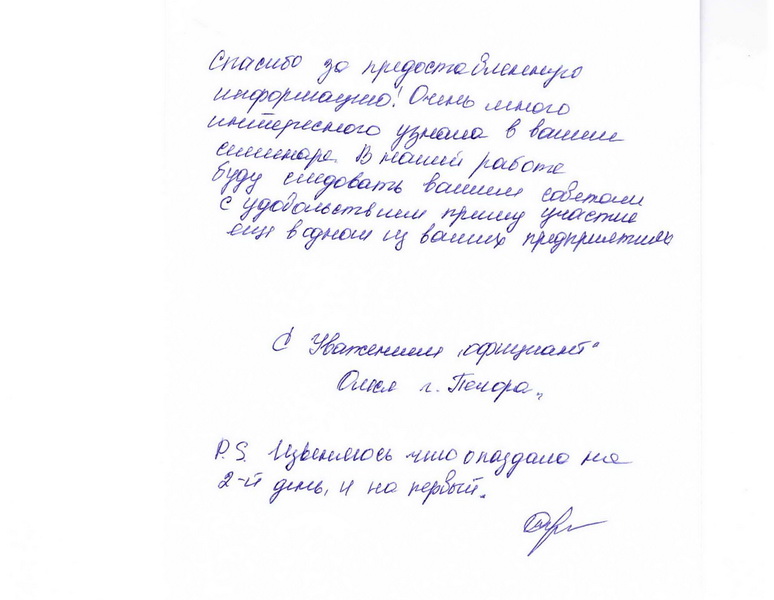 Спасибо за предоставленную
информацию! Очень много
интересного узнала в вашем
семинаре. В нашей работе
буду следовать вашим советам
с удовольствием приму участие
еще в одном из ваших предприятиях
С Уважением "официант"
Олеся г. Печора„
P.S. Извеняюсь что опаздала на
2-й день, и на первый.